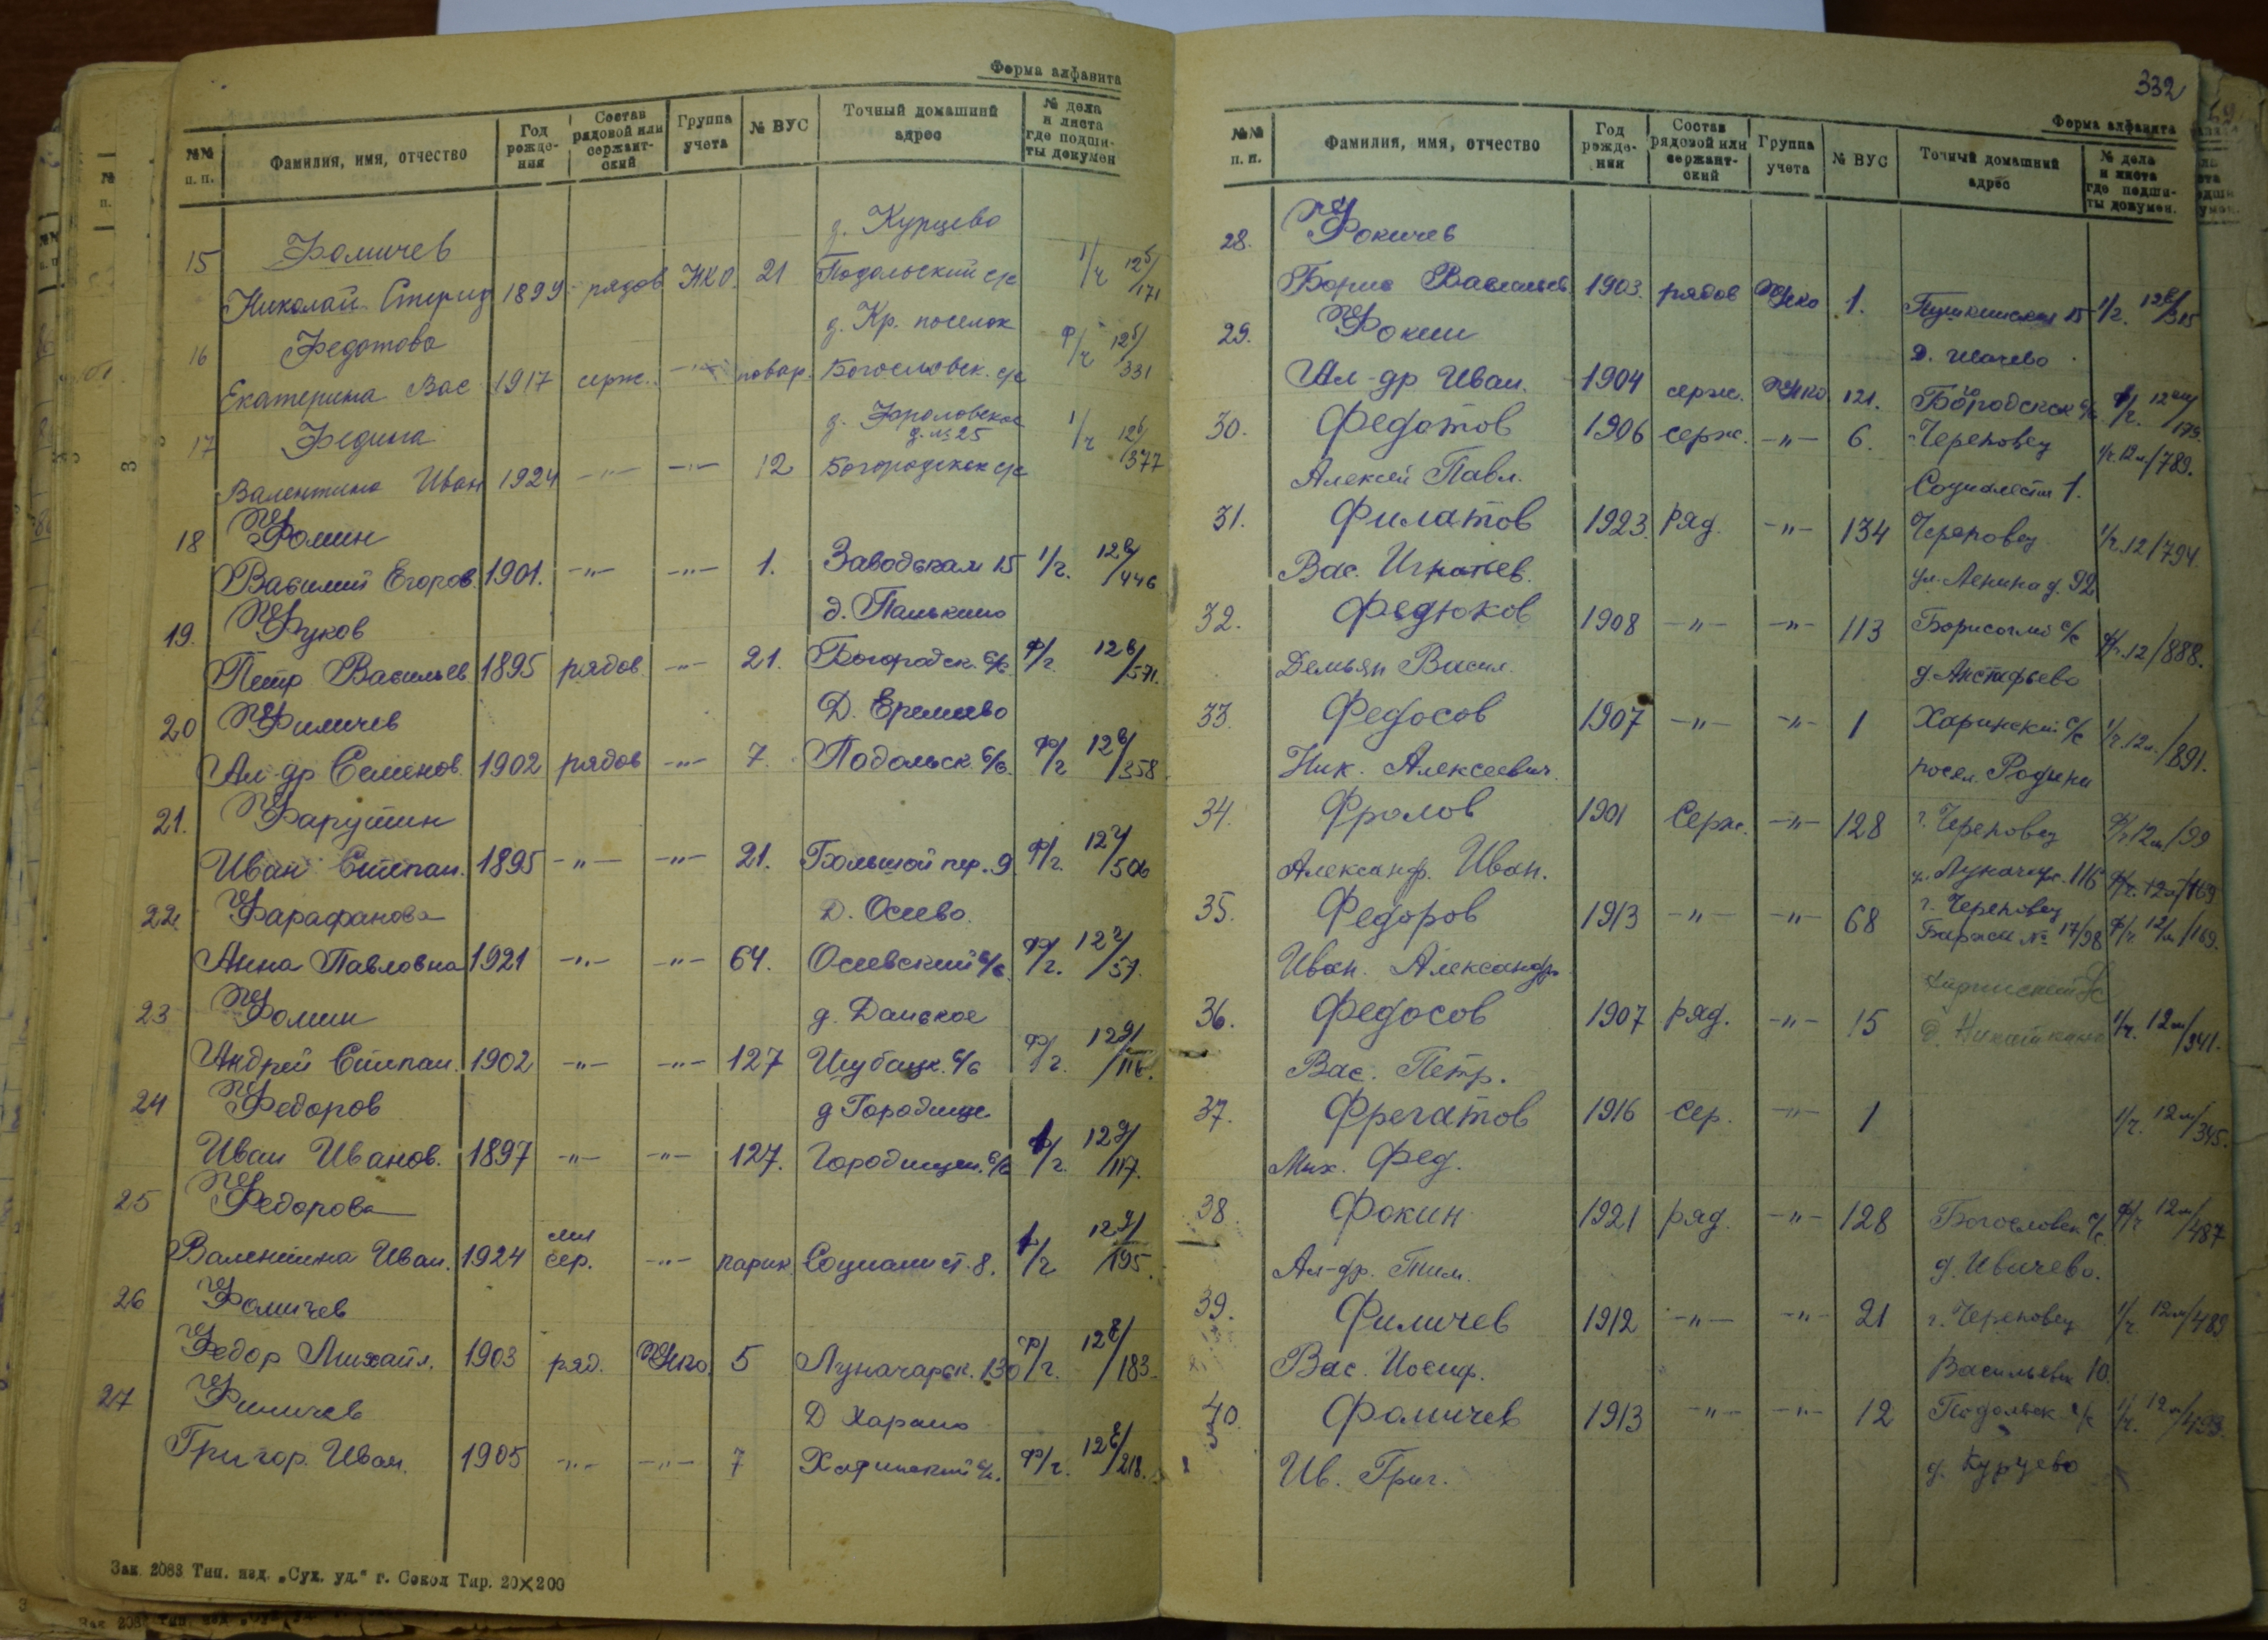 Форма алфавита
№№ п. п. Фамилия, имя, отчество Год рожде-ния Состав рядовой или сержант-ский Группа учета № ВУС Точный домашний адрес № дела и листа где подши-ты докумен
15 Фомичев д. Курцево
Николай 1899 рядов НКО 21 Подольский с/с 1/г 125/171
16 Федотова д. Кр. поселок
Екатерина Вас 1917 серж. -"- повар. Богословск. с/с Ф/г 125/331
17 Федина д. Фроловское д. № 25
Валентина Иван 1924 -"- -"- 12 Богородском с/с 1/г 126/377
18 Фомин
Василий Егоров. 1901. -"- -"- 1. Заводская 15 1/г. 12в/446
19. Фуков д. Панькино
Петр Васильев 1895 рядов -"- 21. Богородск. с/с Ф/г 12в/571.
20 Филичев Д. Еремеево
Ал-др Семенов. 1902 рядов -"- 7. Подольск. с/с. Ф/г 12в/358
21. Фарутин
Иван Степан. 1895 -"- -"- 21. Большой пер. 9 Ф/г. 12/506
22. Фарафанова Д. Осеево.
Анна Павловна 1921 -"- -"- 64. Осеевский с/с. Ф/г. 12/57.
23 Фомин д. Данское
Андрей Степан. 1902 -"- -"- 127 Шубацк. с/с Ф/г. 12д/116.
24 Федоров д Городище
Иван Иванов. 1897 -"- -"- 127. Городищен. с/с Ф/г. 12д/117.
25 Федорова
Валентина Иван. 1924 мл сер. -"- парик. Социалист. 8. Ф/г 12д/195.
26 Фомичев
Федор Михайл. 1903 ряд. Нко. 5 Луначарск. 130 Ф/г. 12/183.
27 Финичев Д
Григор. Иван. 1905 -"- -"- 7 Харинский с/с. Ф/г. 12/218.
Зак. 2083 Тип. изд. „Сух. уд.“ г. Сокол Тир. 20×200
332
Форма алфавита
№№ п. п. Фамилия, имя, отчество Год рожде-ния Состав рядовой или сержант-ский Группа учета № ВУС Точный домашний адрес № дела и листа где подши-ты докумен.
28. Фокичев
Борис Васильев 1903. рядов Нко 1. Пушкинская 15 1/г. 12/315
29. Фокин Д.
Ал-др Иван. 1904 серж. Нко 121. Богородском с/с Ф/г. 12/179.
30. Федотов 1906 серж. -"- 6. Череповец 1/г. 12м/789.
Алексей Павл. Социалисти 1.
31. Филатов 1923. ряд. -"- 134 Череповец 1/г. 12/794.
Вас. Игнатьев. ул. Ленина д. 92
32. Федюков 1908 -"- -"- 113 Борисоглеб с/с Ф/г. 12/888.
Демьян Васил. д. Астафьево
33. Федосов 1907 -"- -"- 1 Харинский с/с 1/г. 12м./891.
Ник. Алексеевич. посел. Родина
34. Фролов 1901 Серж. -"- 128 г. Череповец Ф/г 12м/99
Александ. Иван. у. Луначарс. 116 Ф/г. 12м/169
35. Федоров 1913 -"- -"- 68 г. Череповец
Иван. Александр. Баржи № 17/98 Ф/г. 12/м/169.
36. Федосов 1907 ряд. -"- 15 1/г. 12м/341.
Вас. Петр. д.
37. Фрегатов 1916 Сер. -"- 1 1/г. 12м/345.
Мих. Фед.
38 Фокин 1921 ряд. -"- 128 Богословск с/с Ф/г 12м/487
Ал-др. Тим. д. Ивичево.
39. Филичев 1912 -"- -"- 21 г. Череповец 1/г. 12м/489
Вас. Иосиф. Васильевск 10.
40. Фомичев 1913 -"- -"- 12 Подольск с/с 1/г. 12м/493.
Ив. Григ. д. Курцево